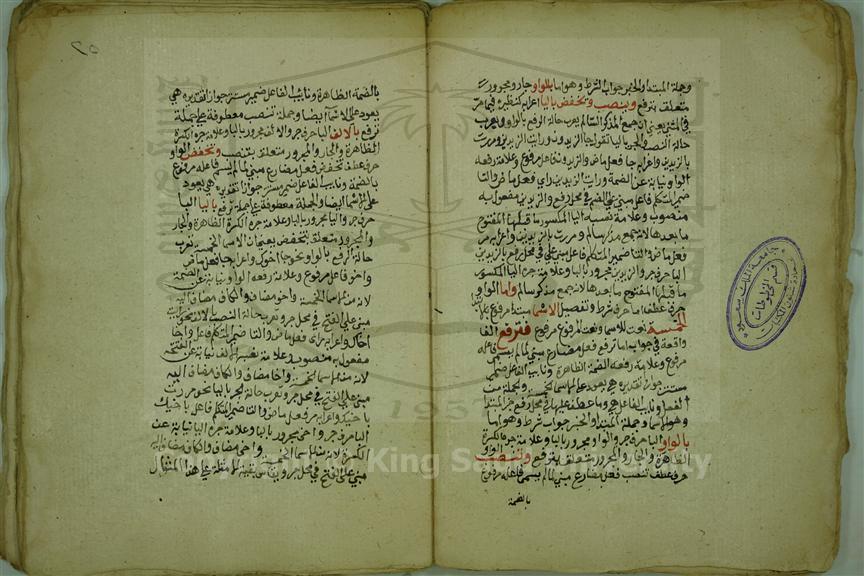 وجملة المبتدا والخبر جواب الشرط وهو اما بالواو جار ومجرور
متعلق بترفع وينصب ويخفض باليا اعرابه كنظيره فيما مر
في المثنى يعني ان جمع المذكر السالم يعرب حالة الرفع بالواو ويعرب
حالة النصب والجر باليا تقول جا الزيدون ورايت الزيدين ومررت
بالزيدين واعرابه جا فعل ماض والزيدون فاعل مرفوع وعلامة رفعه
الواو نيابة عن الضمة ورايت الزيدين راي فعل ماض التا
ضمير المتكلم فاعل مبني على الضم في محل رفع والزيدين مفعول به
منصوب وعلامة نصبه اليا المكسور ما قبلها المفتوح
ما بعدها لانه جمع مذكر سالم ومررت بالزيدين واعرابه مر
فعل ماض والتا ضمير المتكلم فاعل مبني على في محل رفع بالزيدين
البا حرف جر والزيدين مجرور بالبا وعلامة جره اليا المكسور
ما قبلها المفتوح ما بعدها لانه جمع مذكر سالم واما الواو
حرف عطف اما حرف شرط وتفصيل الاسما مبتدا مرفوع
الخمسة نعت للاسما ونعت المرفوع مرفوع فترفع الفا
واقعة في جواب اما ترفع فعل مضارع مبني لما لم يسم فاعله
مرفوع وعلامة رفعه الضمة الظاهرة ونايب الفاعل ضمير
مستتر جوازا تقديره هي يعود على الاسما الخمسة والجملة من
الفعل ونايب الفاعل هي وما عطف عليها في محل رفع خبر المبتدا
وهو الاسما وجملة المبتدا والخبر جواب شرط وهو اما
بالواو البا حرف جر والواو مجرور بالبا وعلامة جره الكسرة
الظاهرة والجار والمجرور متعلق بترفع وتنصب الواو
حرف عطف تنصب فعل مضارع مبني لما لم يسم فاعله مرفوع
بالضمة
بالضمة الظاهرة ونايب الفاعل ضمير مستتر جوازا تقديره هي
يعود على الاسما ايضا وجملة تنصب معطوفة على جملة
ترفع بالالف البا حرف جر والالف مجرور بالبا وعلامة جره الكسرة
الظاهرة والجار والمجرور متعلق بتنصب وتخفض الواو
حرف عطف تخفض فعل مضارع مبني لما لم يسم فاعله مرفوع
بالضمة ونايب الفاعل ضمير مستتر جوازا تقديره هي يعود
على الاسما ايضا والجملة معطوفة على جملة ترفع باليا البا
حرف جر واليا مجرور بالبا وعلامة جره الكسرة الظاهرة والجار
والمجرور متعلق بتخفض يعني ان الاسما الخمسة تعرب
حالة الرفع بالواو نحو جا اخوك واعرابه جا فعل ماض
واخو فاعل مرفوع وعلامة رفعه الواو نيابة عن الضمة
لانه من الاسما الخمسة واخو مضاف والكاف مضاف اليه
مبني على الفتح في محل جر وتعرب حالة النصب بالالف نحو رايت
اخاك واعرابه راى فعل ماض والتا ضمير المتكلم فاعل واخا
مفعول به منصوب وعلامة نصبه الالف نيابة عن الفتحة
لانه من الاسما الخمسة واخا مضاف والكاف مضاف اليه
مبني على الفتح في محل جر وتعرب حالة الجر باليا نحو مررت
باخيك واعرابه مر فعل ماض والتا ضمير المتكلم فاعل باخيك
البا حرف جر واخي مجرور بالبا وعلامة جره اليا نيابة عن
الكسرة لانه من الاسما الخمسة واخي مضاف والكاف مضاف اليه
مبني على الفتح في محل جر وقس بقية الامثلة على هذا المثال
جامعة الملك سعود
قسم المخطوطات
1957
King Saud University